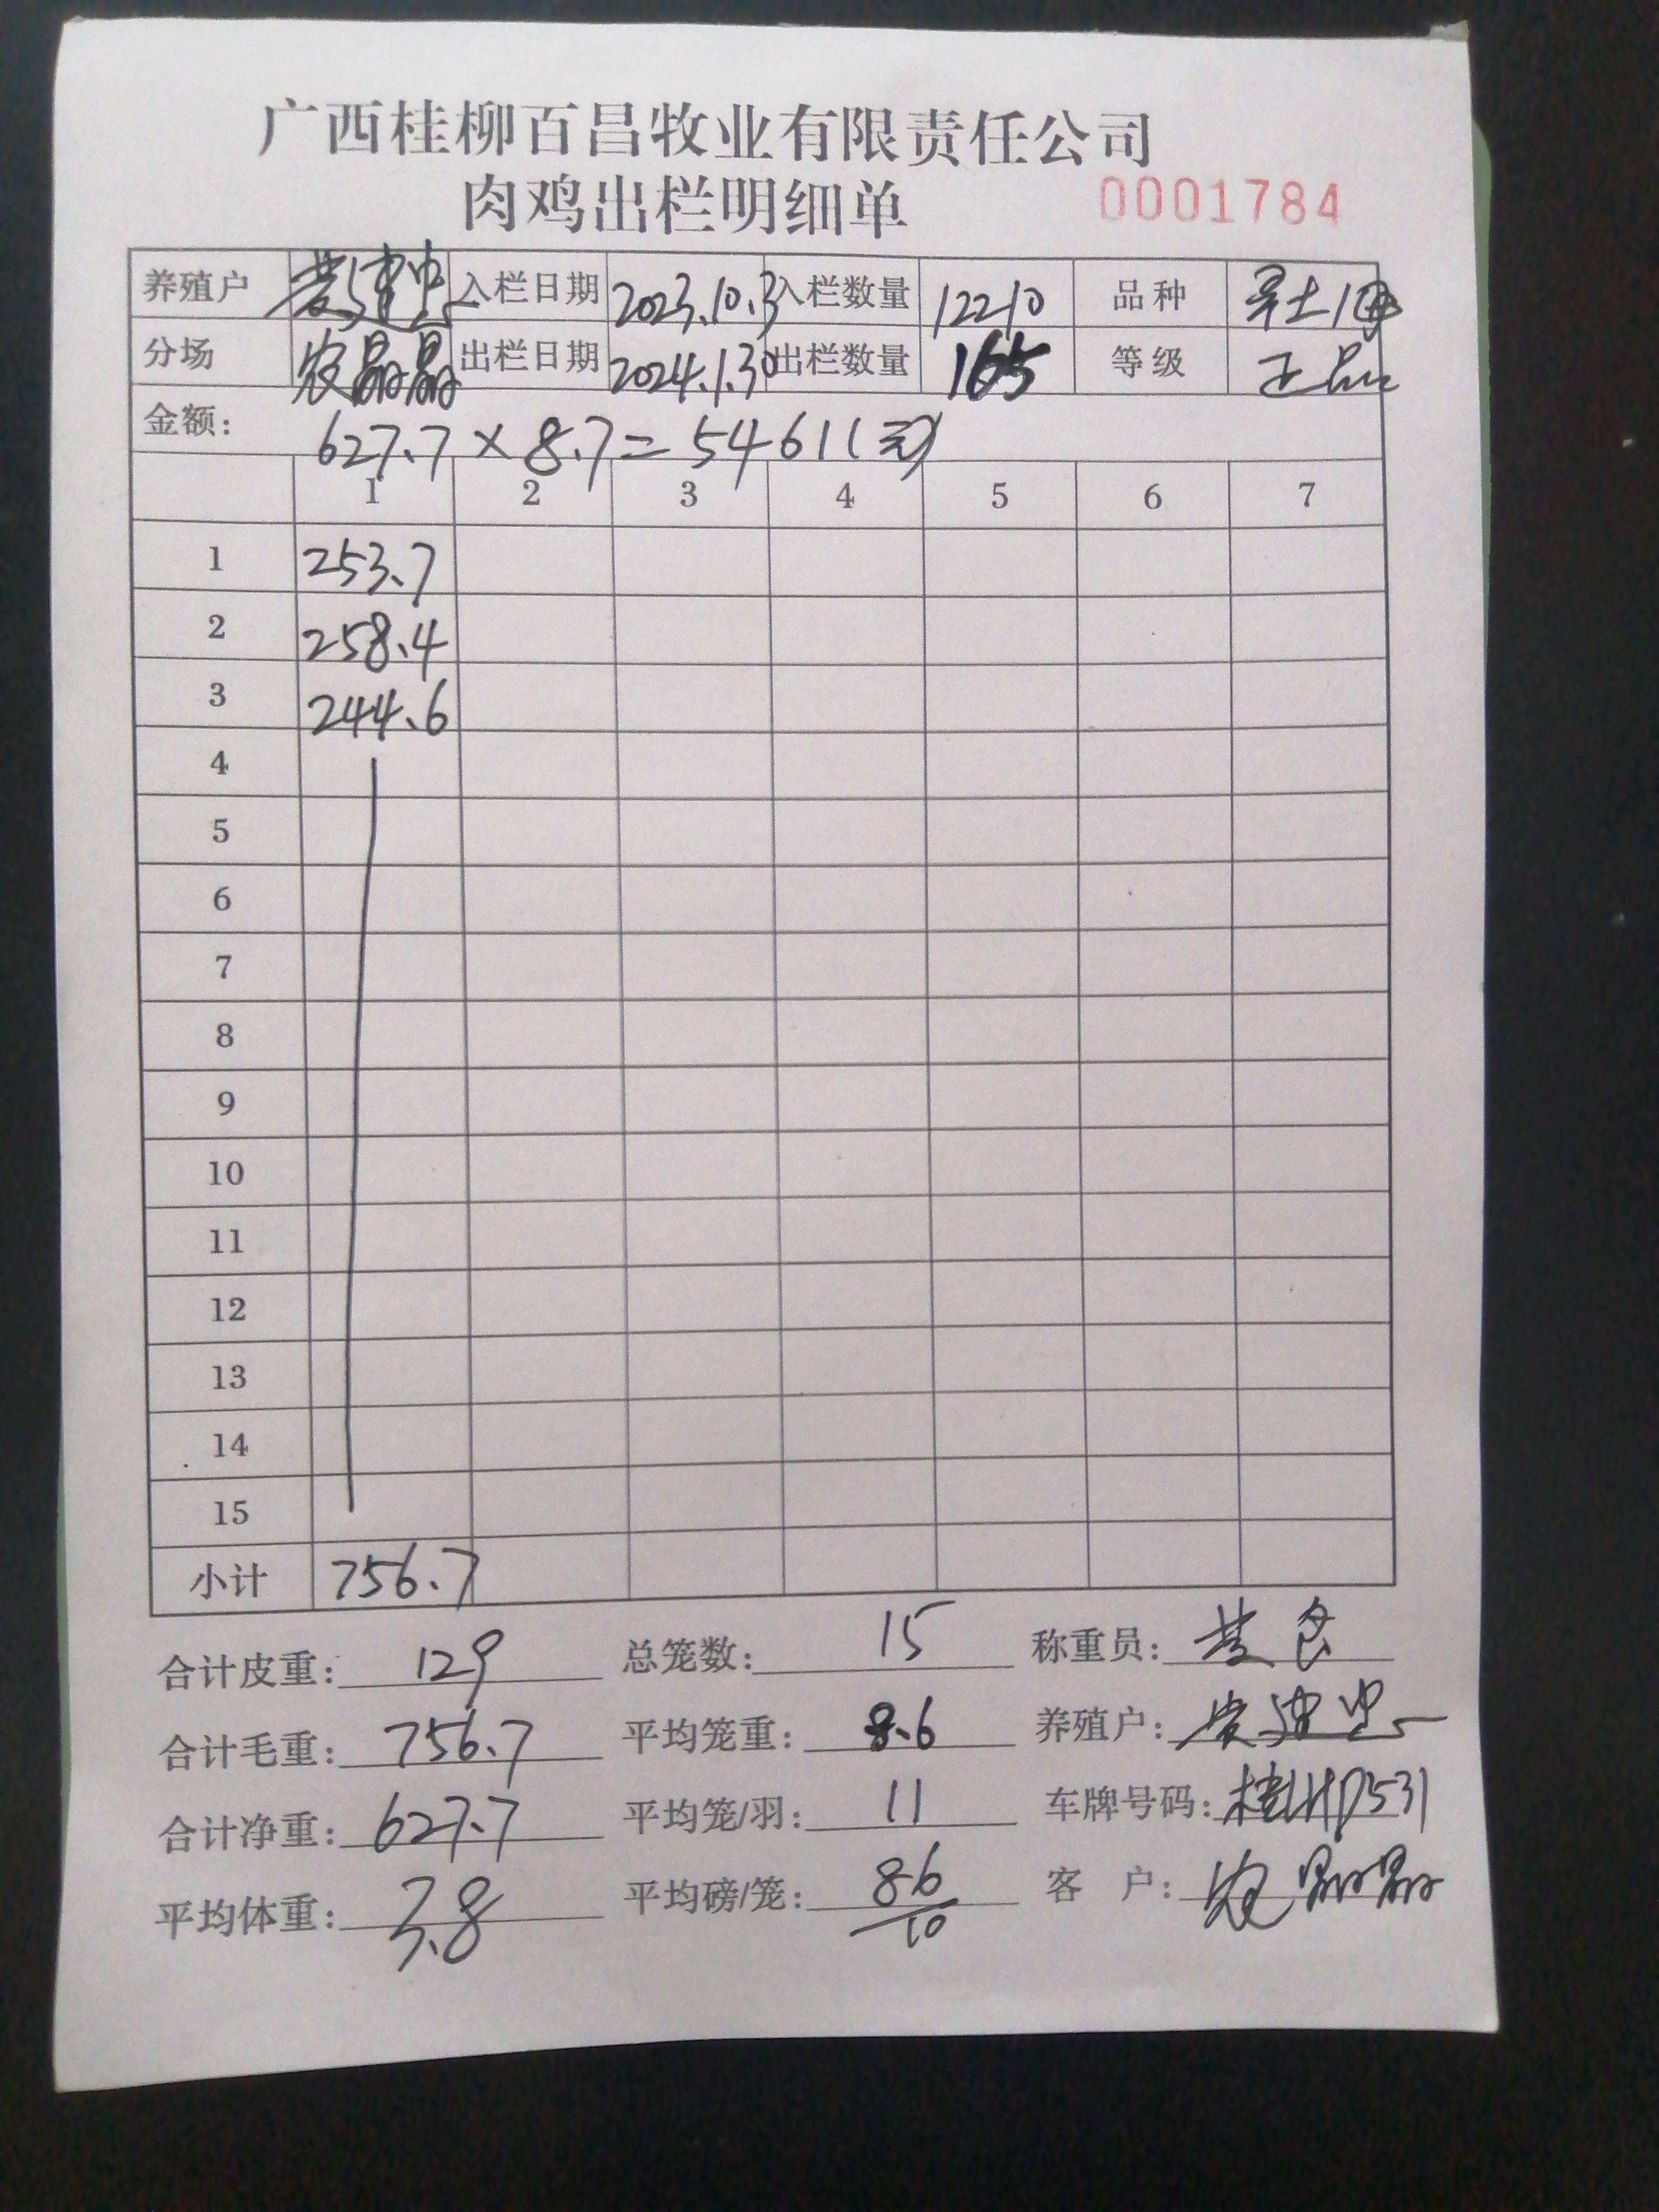 广西桂柳百昌牧业有限责任公司
肉鸡出栏明细单 0001784
养殖户 黄建忠 入栏日期 2023.10.3 入栏数量 12210 品种 土1母
分场 农晶晶 出栏日期 2024.1.30 出栏数量 165 等级 正品
金额: 627.7×8.7=5461(元)
1 2 3 4 5 6 7
1 253.7
2 258.4
3 244.6
4
5
6
7
8
9
10
11
12
13
14
15
小计 756.7
合计皮重: 129 总笼数: 15 称重员: 黄
合计毛重: 756.7 平均笼重: 8.6 养殖户: 黄建忠
合计净重: 627.7 平均笼/羽: 11 车牌号码: 桂HP7531
平均体重: 3.8 平均磅/笼: 86/10 客户: 农晶晶